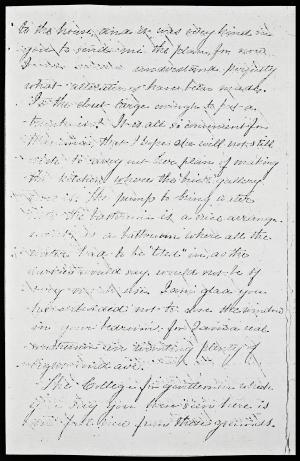 to the house, and it was very kind in
you to send me the plan, for now
I understand perfectly
what alterations have been made.
Is the closet large enough to put a
trunk in? It is all so convenient for
that I hope she will not still
wish to carry out her plan of making
the kitchen where the back gallery
is. The pump to bring water
into the bathroom is a nice arrange-
ment, a bathroom where all the
water had to be "toted" in, as the
would say, would not be of
very much use. I am glad you
have decided not to save the window
in your bedroom, for I am a real
in wanting plenty of
light and air.
The College for gentlemen which
you say you have seen here is
from these grounds.